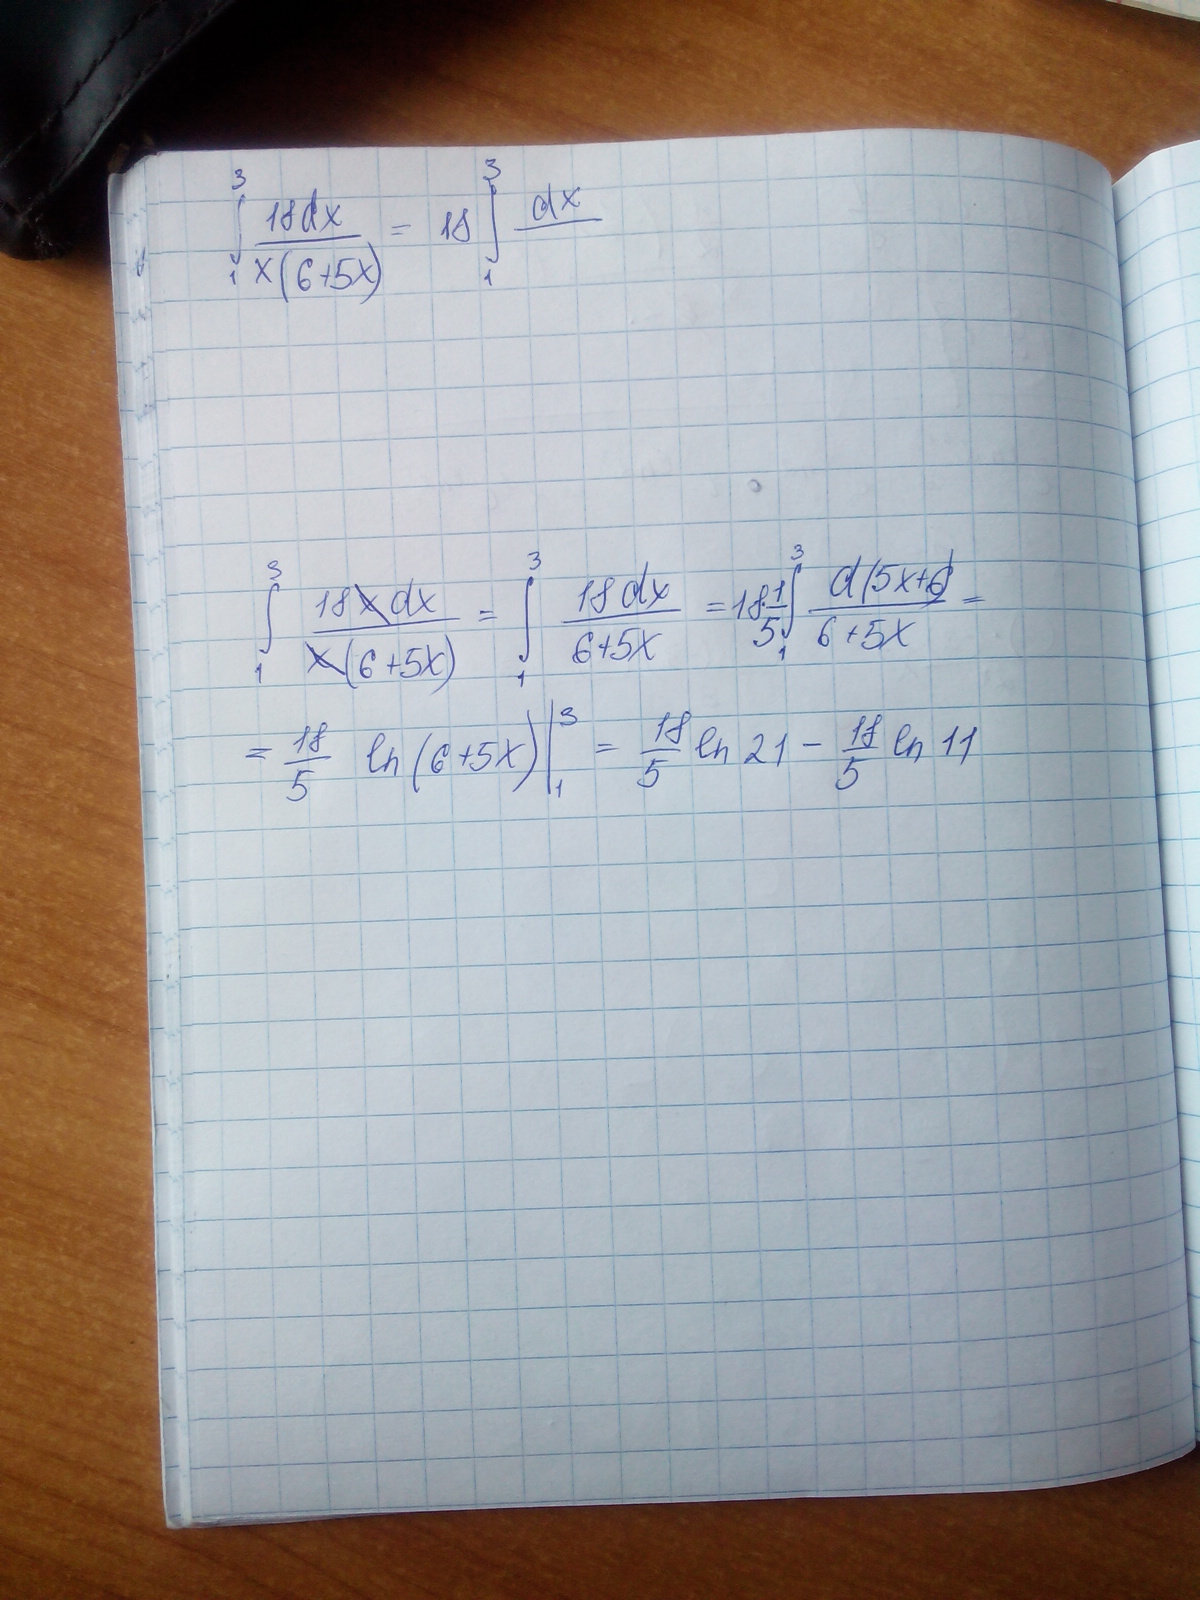 ∫₁³ 18dx / x(6+5x) = 18 ∫₁³ dx /
∫₁³ 18x dx / x(6+5x) = ∫₁³ 18dx / 6+5x = 18·1/5 ∫₁³ d(5x+6) / 6+5x =
= 18/5 ln(6+5x) |₁³ = 18/5 ln 21 − 18/5 ln 11